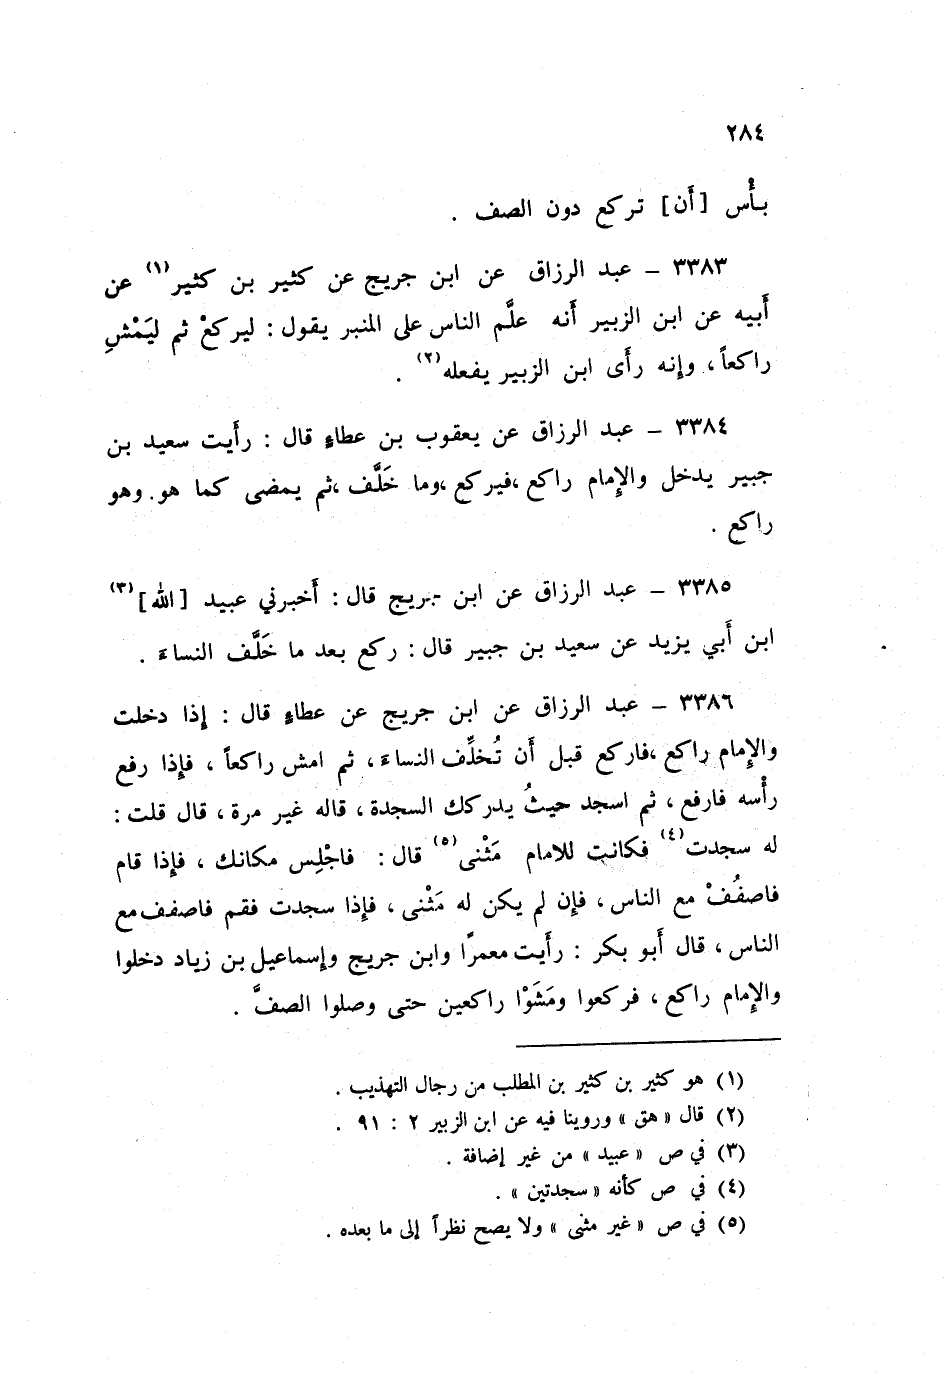 ٢٨٤
بأْس [أَن] تركع دون الصف .
٣٣٨٣ – عبد الرزاق عن ابن جريج عن كثير بن كثير(١) عن
أَبيه عن ابن الزبير أَنه علَّم الناس على المنبر يقول : ليركعْ ثم ليَمْشِ
راكعاً ، وإنه رأَى ابن الزبير يفعله(٢) .
٣٣٨٤ – عبد الرزاق عن يعقوب بن عطاءٍ قال : رأَيت سعيد بن
جبير يدخل والإِمام راكع ،فيركع ،وما خَلَّف ،ثم يمضى كما هو . وهو
راكع .
٣٣٨٥ – عبد الرزاق عن ابن جريج قال : أَخبرني عبيد [الله](٣)
ابن أَبي يزيد عن سعيد بن جبير قال : ركع بعد ما خَلَّف النساءَ .
٣٣٨٦ – عبد الرزاق عن ابن جريج عن عطاءٍ قال : إِذا دخلت
والإِمام راكع ،فاركع قبل أَن تُخلِّف النساءَ ، ثم امش راكعاً ، فإِذا رفع
رأْسه فارفع ، ثم اسجد حيثُ يدركك السجدة ، قاله غير مرة ، قال قلت :
له سجدت(٤) فكانت للامام مَثْنى(٥) قال : فاجْلِس مكانك ، فإِذا قام
فاصفُفْ مع الناس ، فإِن لم يكن له مَثْنى ، فإِذا سجدت فقم فاصفف مع
الناس ، قال أَبو بكر : رأَيت معمرًا وابن جريج وإِسماعيل بن زياد دخلوا
والإِمام راكع ، فركعوا ومَشَوْا راكعين حتى وصلوا الصفَّ .
(١) هو كثير بن كثير بن المطلب من رجال التهذيب .
(٢) قال « هق » وروينا فيه عن ابن الزبير ٢ : ٩١ .
(٣) في ص « عبيد » من غير إضافة .
(٤) في ص كأنه « سجدتين » .
(٥) في ص « غير مثنى » ولا يصح نظراً إلى ما بعده .